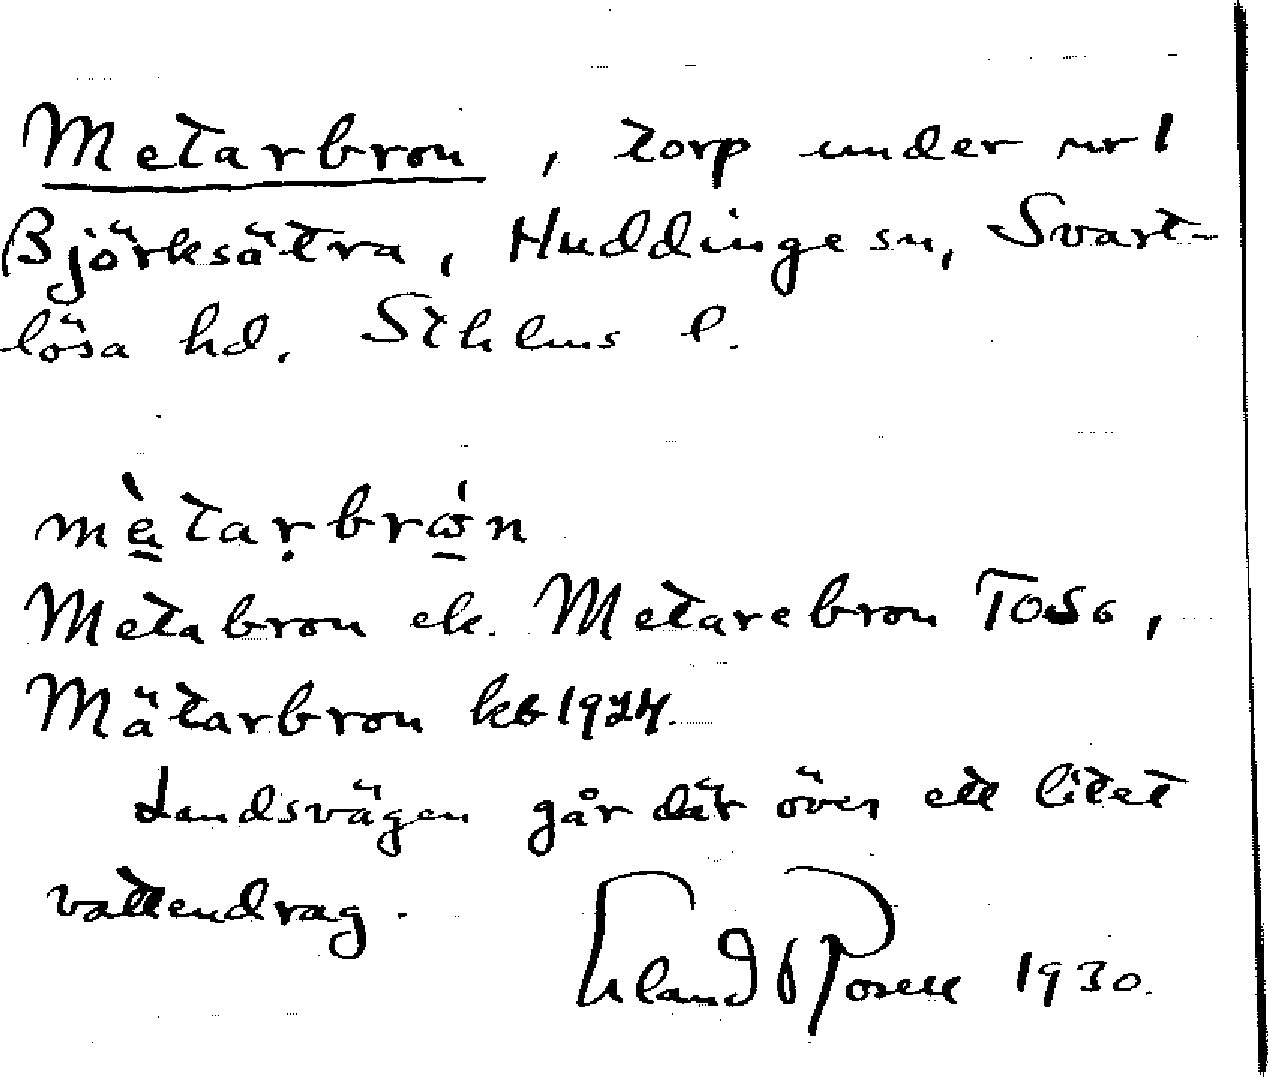 Metarbron, torp under nr 1
Björksätra, Huddinge sn, Svart-
lösa hd. Sthlms l.
mètarbrón
Metabron ek. Metarebron TOSo,
Mätarbron kb 1924.
Landsvägen går där över ett litet
vattendrag.
Erland Rosell 1930.